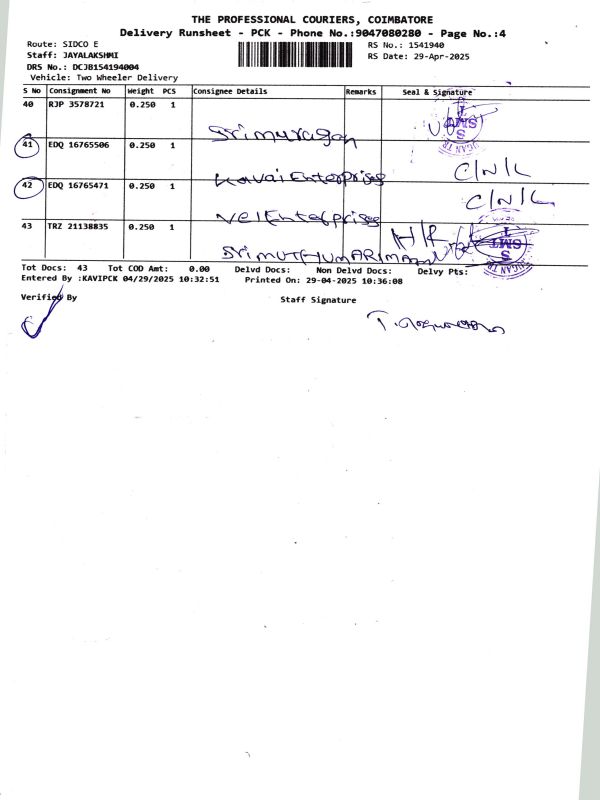 THE PROFESSIONAL COURIERS, COIMBATORE
Delivery Runsheet - PCK - Phone No.:9047080280 - Page No.:4
Route: SIDCO E RS No.: 1541940
Staff: JAYALAKSHMI RS Date: 29-Apr-2025
DRS No.: DCJB154194004
Vehicle: Two Wheeler Delivery
S No Consignment No Weight PCS Consignee Details Remarks Seal & Signature
40 RJP 3578721 0.250 1
Srimuragan
41 EDQ 16765506 0.250 1 C/N/L
Kavai Enterprises
42 EDQ 16765471 0.250 1 C/N/L
Vel Enterprises
43 TRZ 21138835 0.250 1
SMT
Tot Docs: 43 Tot COD Amt: 0.00 Delvd Docs: Non Delvd Docs: Delvy Pts:
Entered By :KAVIPCK 04/29/2025 10:32:51 Printed On: 29-04-2025 10:36:08
Verified By Staff Signature